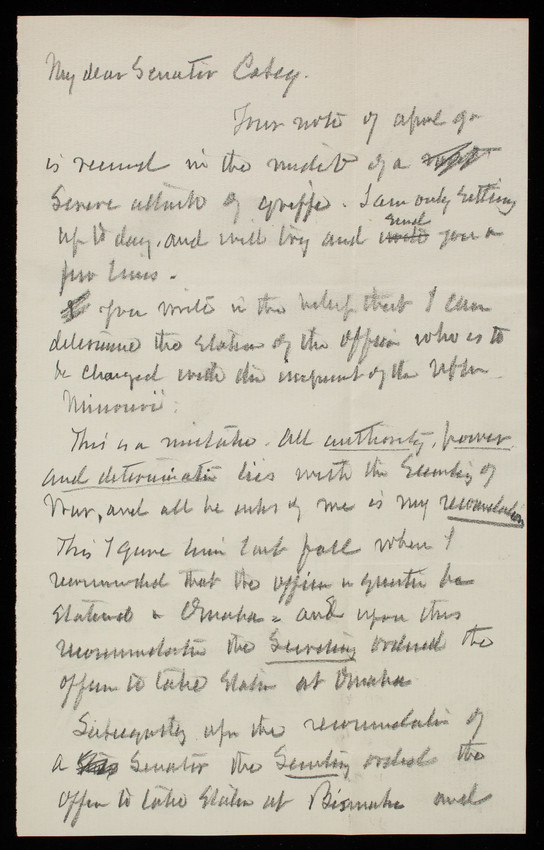 My dear Senator Casey.
Your note of April 9
is received in the midst of a
severe attack of grippe. I am only setting
up to day, and will try and send you a
few lines.
You write in the belief that I can
determine the station of the officer who is to
be charged with the improvement of the Upper
Missouri:
This is a mistake. All authority, power,
and determination lies with the Secretary of
War, and all he asks of me is my recommendation
This I gave him last fall when I
recommended that the officer in question be
stationed in Omaha - and upon this
recommendation the Secretary ordered the
officer to take station at Omaha
Subsequently upon the recommendation of
a Senator the Secretary ordered the
officer to take station at Bismarke and